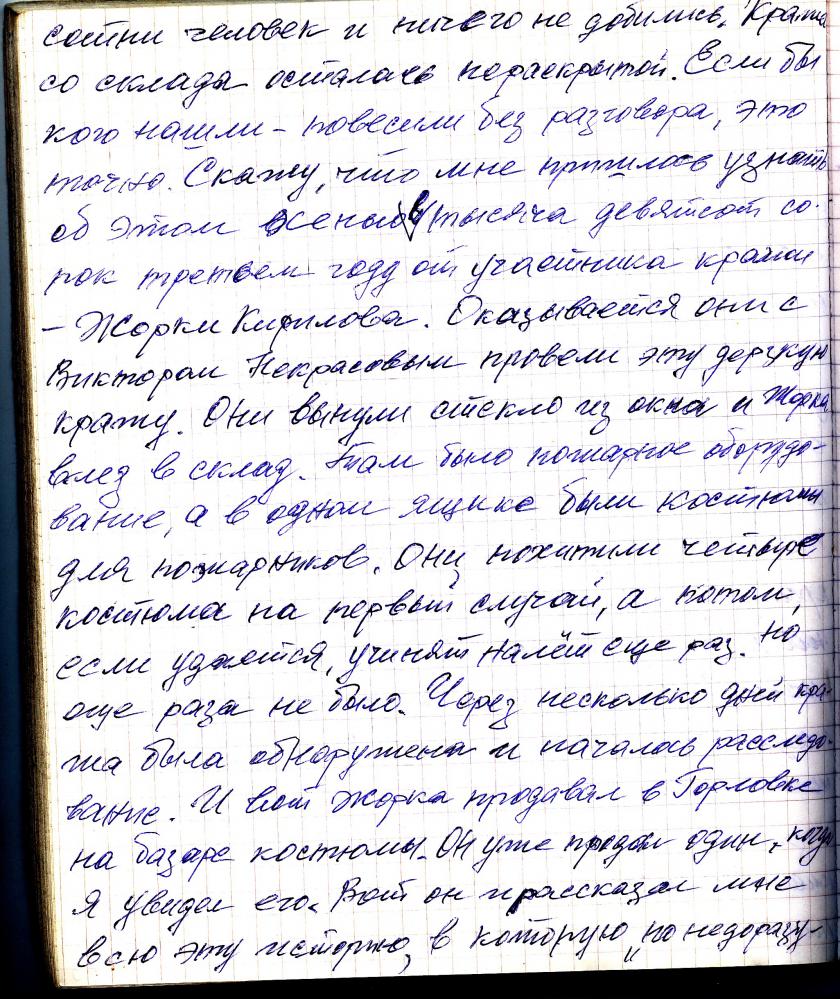 сотни человек и ничего не добились. Кража
со склада осталась нераскрытой. Если бы
кого нашли – повесили без разговора, это
точно. Скажу, что мне пришлось узнать
об этом осенью в тысяча девятсот со-
рок третьем году от участника кражи
– Жорки Кирилова. Оказывается они с
Виктором Некрасовым провели эту дерзкую
кражу. Они вынули стекло из окна и Жорка
влез в склад. Там было пожарное оборудо-
вание, а в одном ящике были костюмы
для пожарников. Они похитили четыре
костюма на первый случай, а потом,
если удается, учинят налёт еще раз. Но
еще раза не было. Через несколько дней кра-
жа была обнаружена и началось расследо-
вание. И вот Жорка продавал в Горловке
на базаре костюмы. Он уже продал один, когда
я увидел его. Вот он и рассказал мне
всю эту историю, в которую „по недоразу-